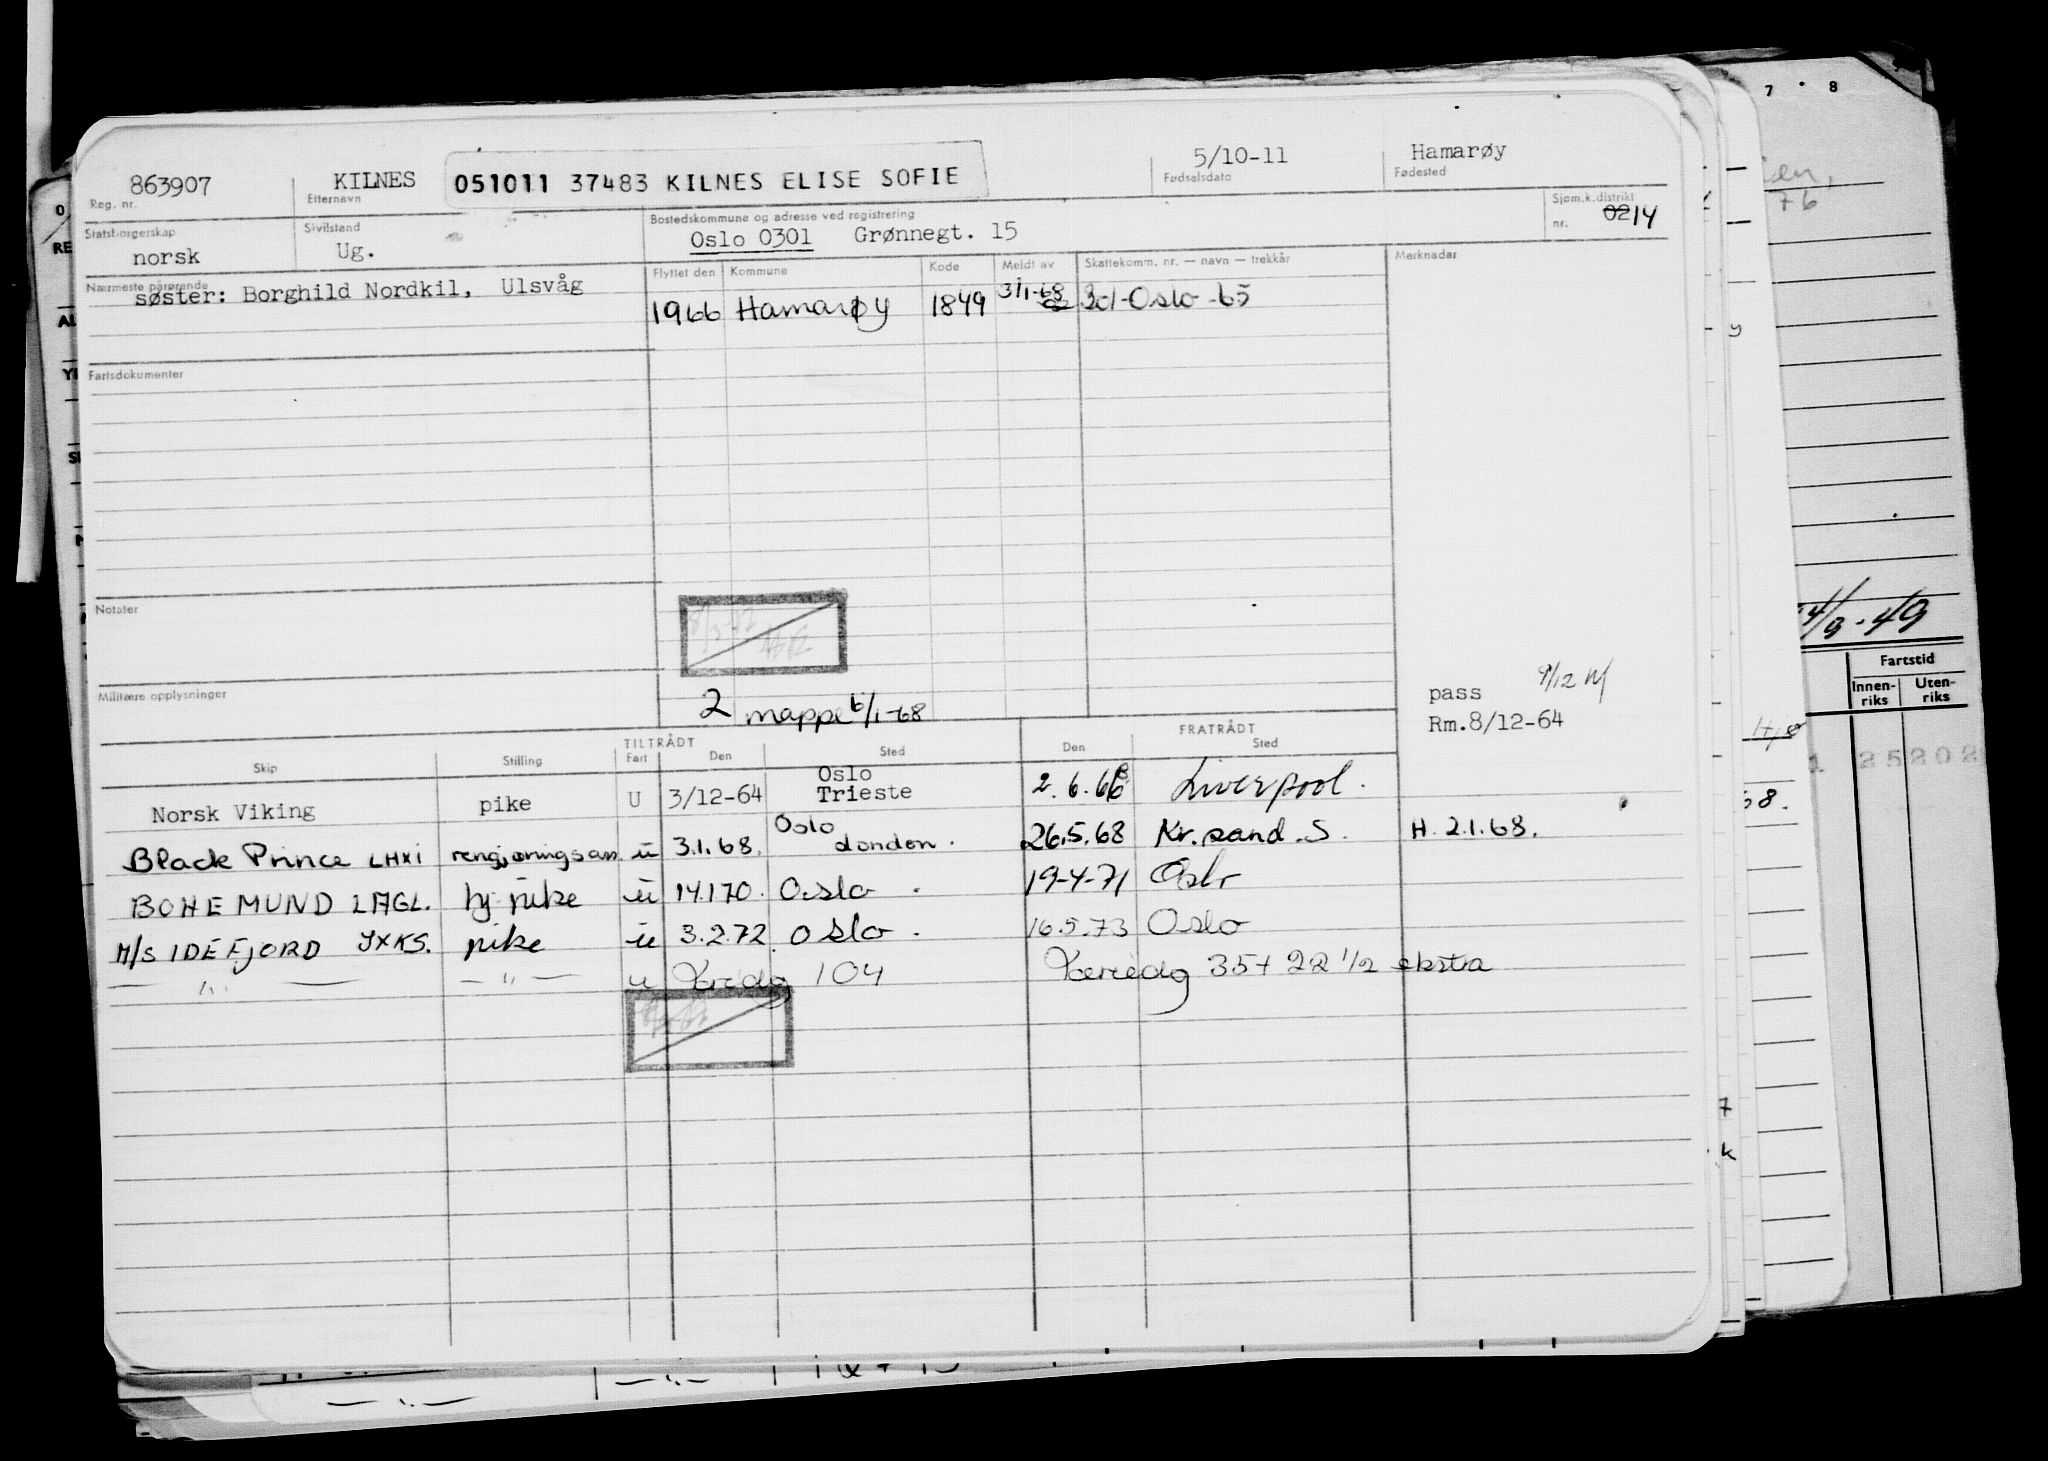 863907 KILNES 051011 37483 KILNES ELISE SOFIE 5/10-11 Hamarøy
Reg. nr. Etternavn Fødselsdato Fødested
Statsborgerskap Sivilstand Bostedskommune og adresse ved registrering Sjøm.k.distrikt
norsk Ug. Oslo 0301 Grønnegt. 15 nr. 0214
Nærmeste pårørende Flyttet den Kommune Kode Meldt av Skattekomm. nr. — navn — trekkår Merknader
søster: Borghild Nordkil, Ulsvåg
1966 Hamarøy 1849 3/1-68 301-Oslo-65
Fartsdokumenter
Notater
Militære opplysninger
2 mappe 6/1-68
pass 9/12
Rm.8/12-64
TILTRÅDT FRATRÅDT
Skip Stilling Fart Den Sted Den Sted
Norsk Viking pike U 3/12-64 Oslo Trieste 2.6.66 Liverpool.
Black Prince LHXI rengjøringsass. u 3.1.68. Oslo London. 26.5.68 Kr.sand.S. H. 2.1.68.
BOHEMUND LAGL. hj pike u 14.1.70. Oslo. 19-4-71 Oslo
M/S IDEFJORD JXKS. pike u 3.2.72 Oslo. 16.5.73 Oslo
— " — — " — u 104 35+ 22 1/2 ekstra
7 8
76
4/9-49
Fartstid
Innen-riks Uten-riks